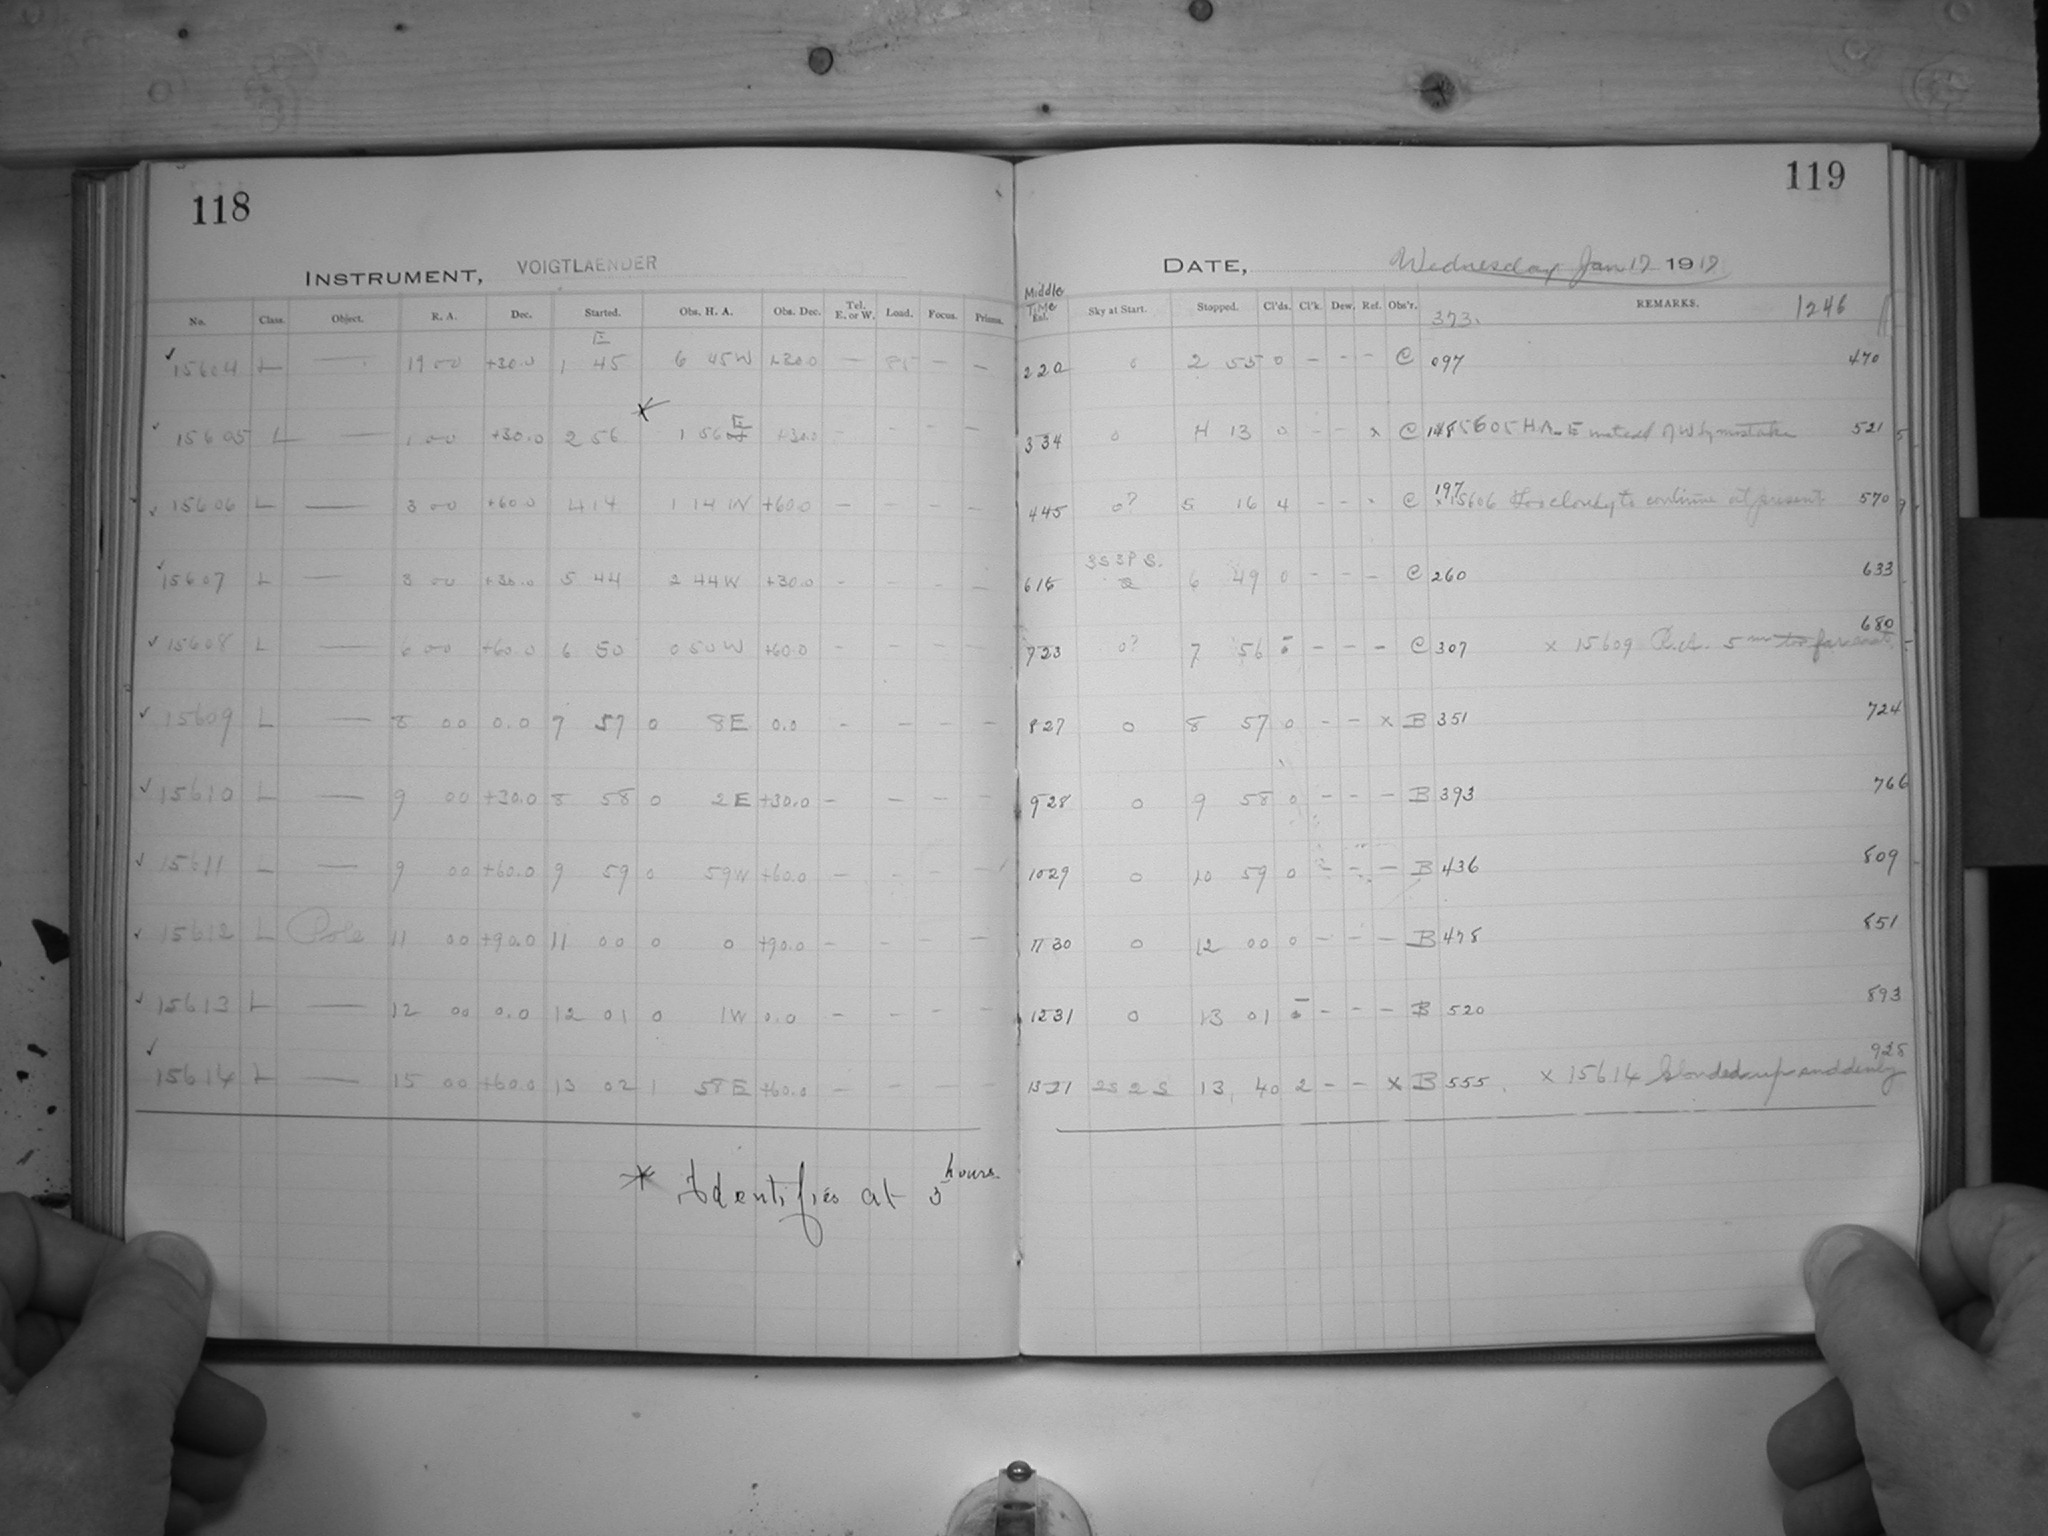 118
INSTRUMENT, VOIGTLAENDER
No. Class. Object. R. A. Dec. Started. Obs. H. A. Obs. Dec. Tel. E. or W. Load. Focus. Prisms.
E
15604 L — 19 00 +30.0 1 45 6 45W +30.0 — — —
15605 L — 1 00 +30.0 2 56 1 56 E +30.0 - - - -
15606 L — 3 00 +60.0 4 14 1 14 W +60.0 - - - -
15607 L — 3 00 +30.0 5 44 2 44W +30.0 - - - -
15608 L — 6 00 +60.0 6 50 0 50W +60.0 - - - -
15609 L — 8 00 0.0 7 57 0 8E 0.0 - - - -
15610 L — 9 00 +30.0 8 58 0 2E +30.0 - - - -
15611 L — 9 00 +60.0 9 59 0 59W +60.0 - - - -
15612 L Pole 11 00 +90.0 11 00 0 0 +90.0 - - - -
15613 L — 12 00 0.0 12 01 0 1W 0.0 - - - -
15614 L — 15 00 +60.0 13 02 1 58E +60.0 - - - -
* Identifies at 3 hours.
119
DATE, Wednesday Jan 17 1917
Middle Time
Sky at Start. Stopped. Cl'ds. Cl'k. Dew. Ref. Obs'r. REMARKS. 1246
373.
2 20 0 2 55 0 - - - C 097 470
3 34 0 4 13 0 - - x C 148 15605 H.A. E instead of W by mistake 521
4 45 0? 5 16 4 - - C 197 x 15606 Too cloudy to continue at present 570
3S 3P S.
6 16 6 49 0 - - - C 260 633
7 23 0? 7 56 - - - C 307 x 15609 R.A. 5m too far east 680
8 27 0 8 57 0 - - x B 351 724
9 28 0 9 58 0 - - - B 393 766
10 29 0 10 59 0 - - - B 436 809
11 30 0 12 00 0 - - - B 478 851
12 31 0 13 01 - - - B 520 893
13 21 2S 2S 13 40 2 - - x B 555. x 15614 Clouded up suddenly 928